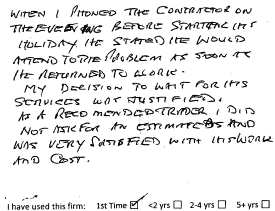 WHEN I PHONED THE CONTRACTOR ON
THE EVENING BEFORE STARTING HIS
HOLIDAY, HE STATED HE WOULD
ATTEND TO THE PROBLEM AS SOON AS
HE RETURNED TO WORK.
MY DECISION TO WAIT FOR HIS
SERVICES WAS JUSTIFIED.
AS A RECOMENDED TRADER I DID
NOT ASK FOR AN ESTIMATE AND
WAS VERY SATISFIED WITH HIS WORK
AND COST.
I have used this firm: 1st Time ☑ <2 yrs ☐ 2-4 yrs ☐ 5+ yrs ☐